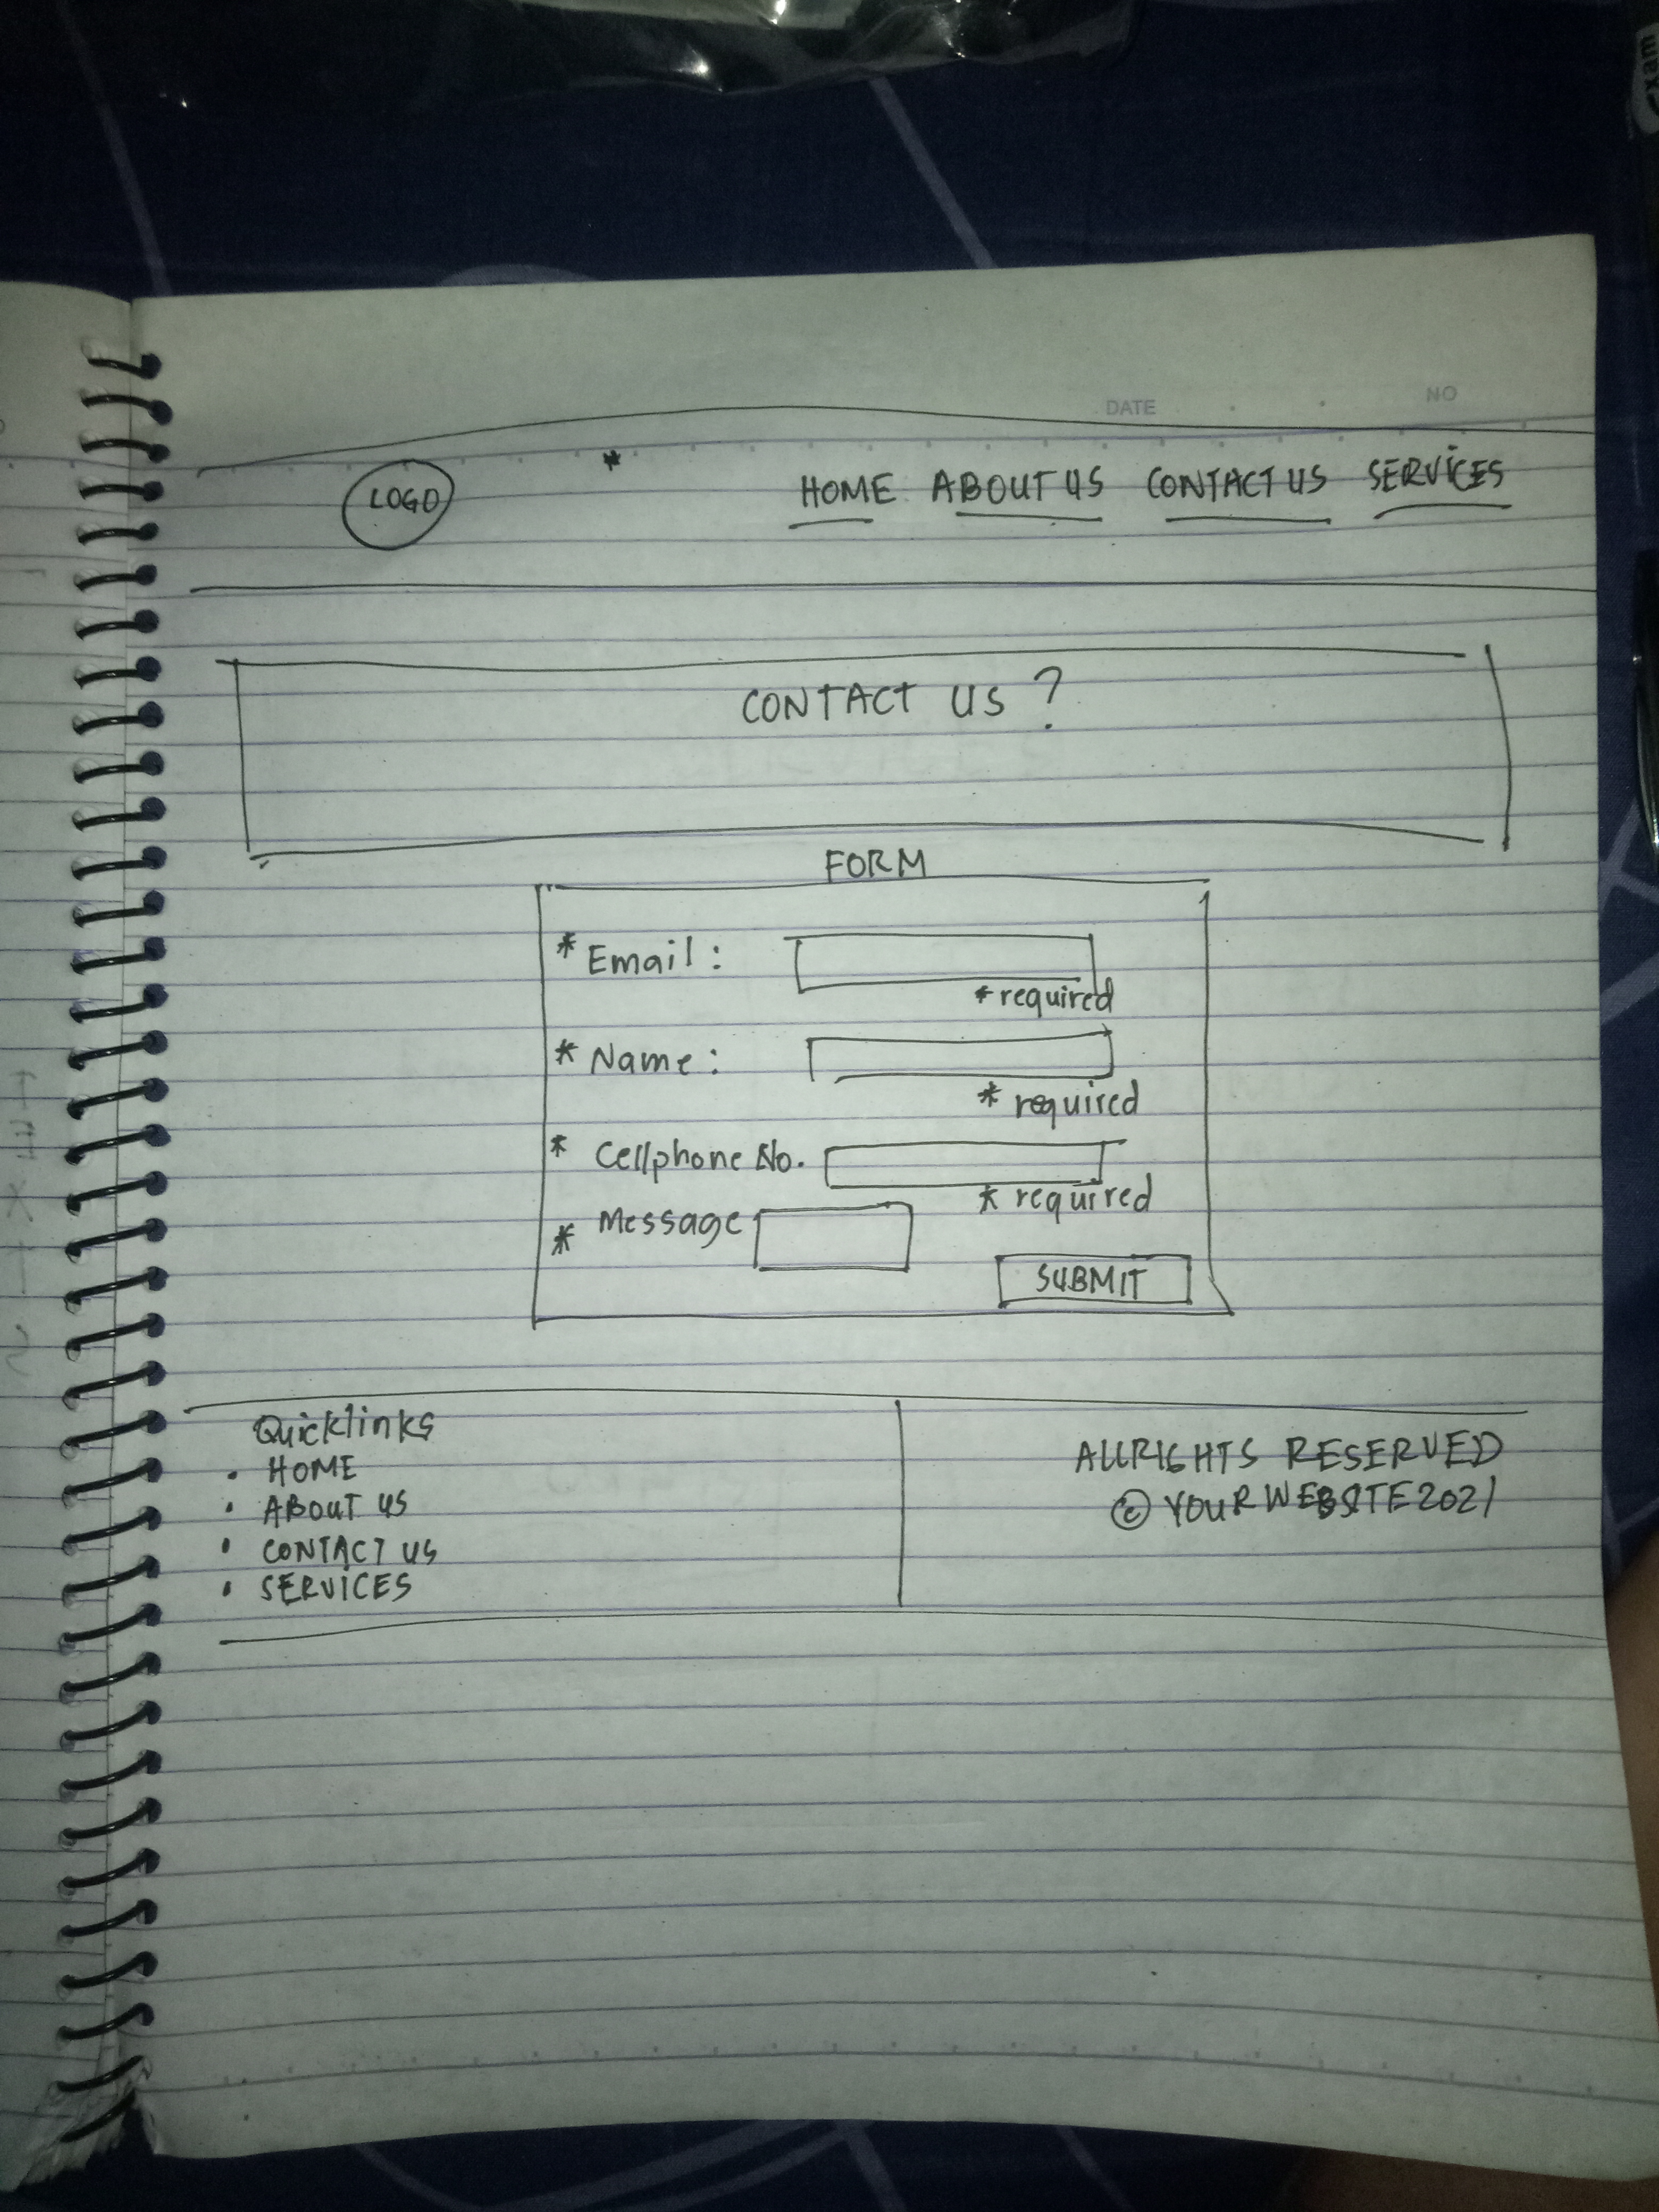 exam
DATE
NO
LOGO
* HOME ABOUT US CONTACT US SERVICES
CONTACT US ?
FORM
* Email :
* required
* Name :
* required
* Cellphone No.
* required
* Message
SUBMIT
Quicklinks
• HOME
• ABOUT US
• CONTACT US
• SERVICES
ALLRIGHTS RESERVED
© YOUR WEBSITE 2021